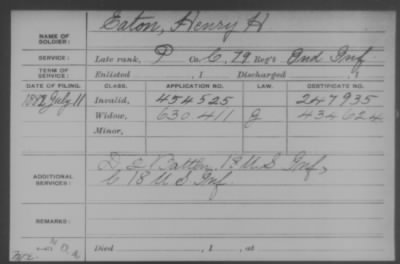 NAME OF SOLDIER: Eaton, Henry H
SERVICE: Late rank, P Co. C, 79 Reg't Ind Inf
TERM OF SERVICE: Enlisted , 1 Discharged , 1
DATE OF FILING. CLASS. APPLICATION NO. LAW. CERTIFICATE NO.
1882 July 11 Invalid, 454525 247935
Widow, 630.411 G 434624
Minor,
ADDITIONAL SERVICES: D & Batton 18 U S Inf,
C 18 U S Inf
REMARKS:
Died , 1 , at